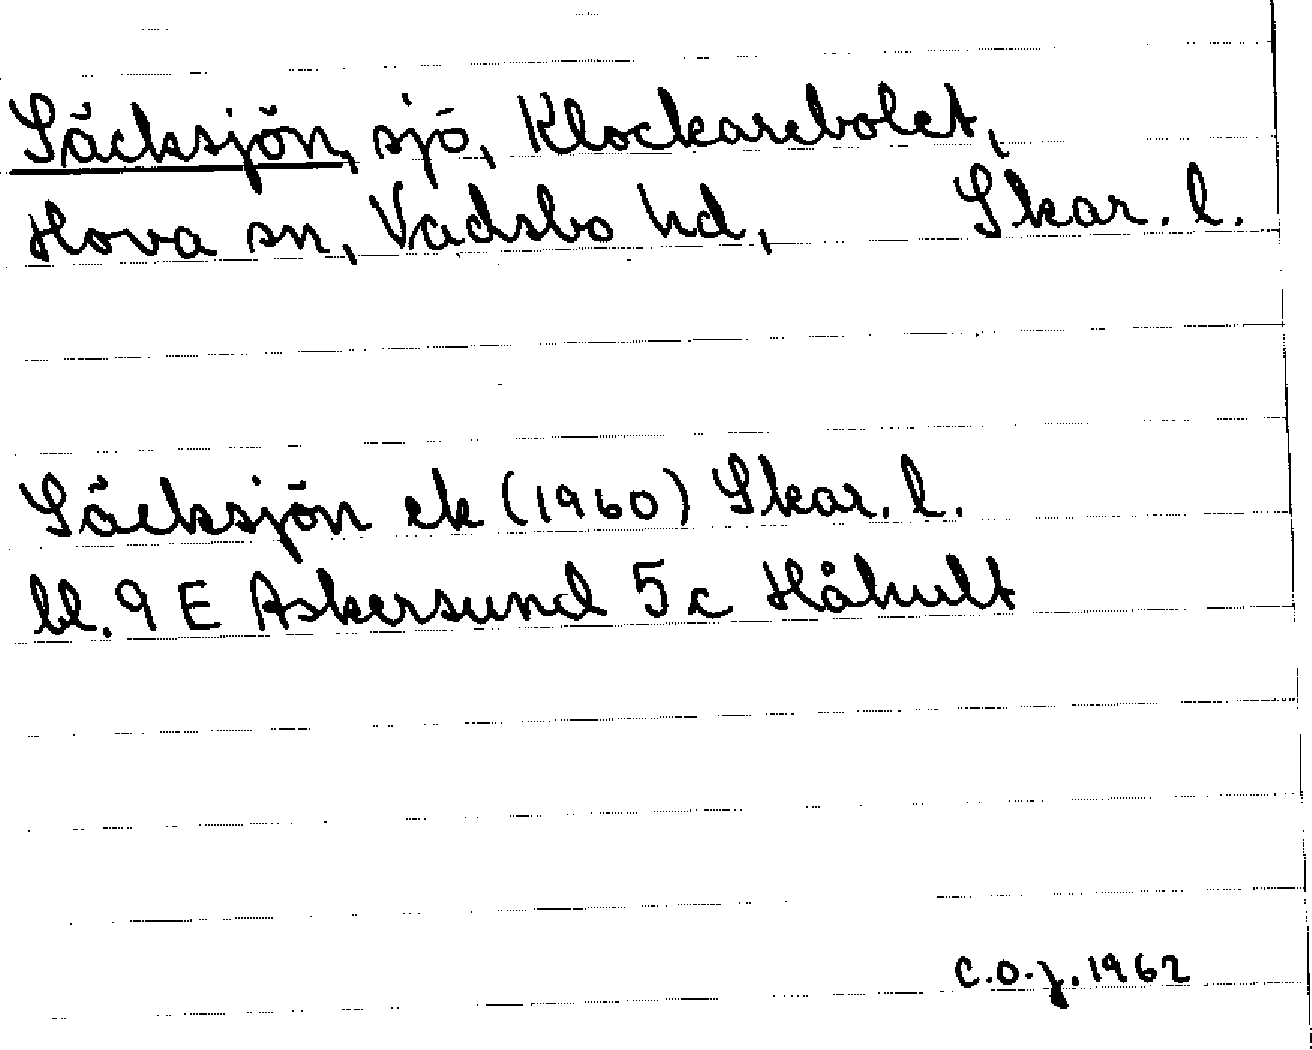 Säcksjön, sjö, Klockarebolet,
Hova sn, Vadsbo hd, Skar. l.
Säcksjön ek (1960) Skar. l.
bl. 9 E Askersund 5c Håhult
C.O.J. 1962